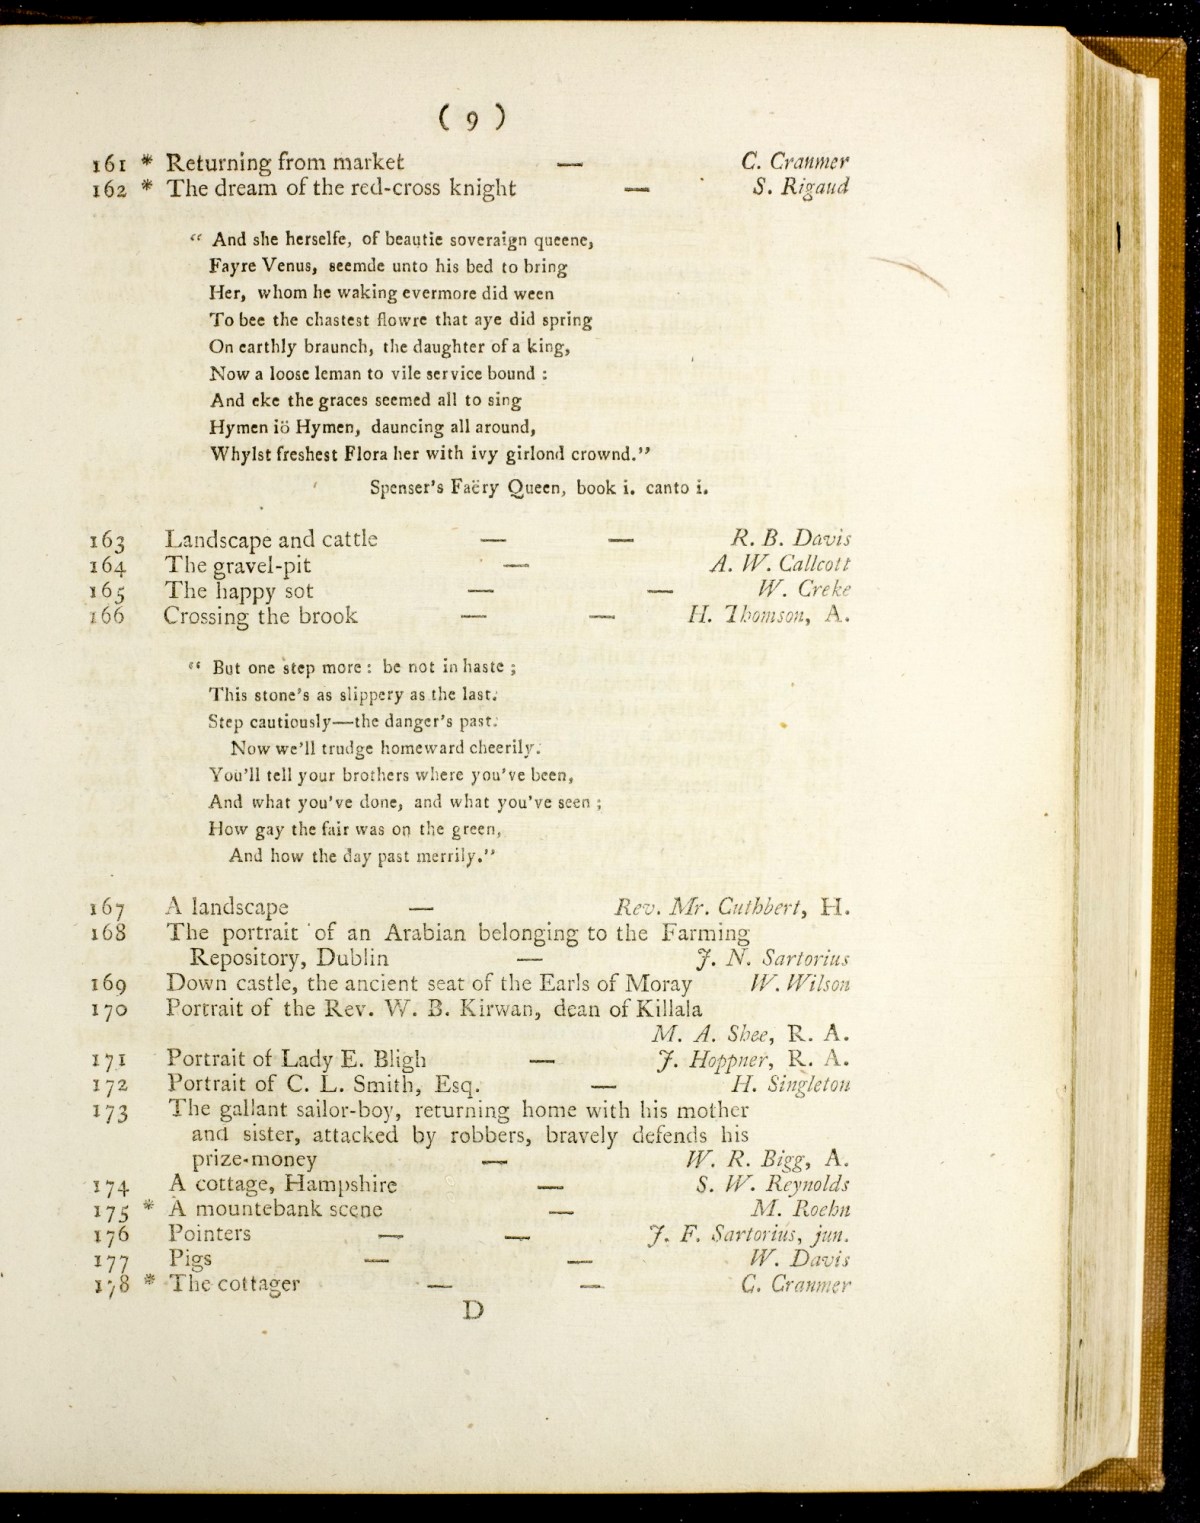 ( 9 )
161 * Returning from market — C. Cranmer
162 * The dream of the red-cross knight — S. Rigaud
“ And she herselfe, of beautie soveraign queene,
Fayre Venus, seemde unto his bed to bring
Her, whom he waking evermore did ween
To bee the chastest flowre that aye did spring
On earthly braunch, the daughter of a king,
Now a loose leman to vile service bound :
And eke the graces seemed all to sing
Hymen iö Hymen, dauncing all around,
Whylst freshest Flora her with ivy girlond crownd.”
Spenser's Faëry Queen, book i. canto i.
163 Landscape and cattle — — R. B. Davis
164 The gravel-pit — A. W. Callcott
165 The happy sot — — W. Creke
166 Crossing the brook — — H. Thomson, A.
“ But one step more : be not in haste ;
This stone's as slippery as the last.
Step cautiously—the danger's past.
Now we'll trudge homeward cheerily.
You'll tell your brothers where you've been,
And what you've done, and what you've seen ;
How gay the fair was on the green,
And how the day past merrily.”
167 A landscape — Rev. Mr. Cuthbert, H.
168 The portrait of an Arabian belonging to the Farming
Repository, Dublin — J. N. Sartorius
169 Down castle, the ancient seat of the Earls of Moray W. Wilson
170 Portrait of the Rev. W. B. Kirwan, dean of Killala
M. A. Shee, R. A.
171 Portrait of Lady E. Bligh — J. Hoppner, R. A.
172 Portrait of C. L. Smith, Esq. — H. Singleton
173 The gallant sailor-boy, returning home with his mother
and sister, attacked by robbers, bravely defends his
prize-money — W. R. Bigg, A.
174 A cottage, Hampshire — S. W. Reynolds
175 * A mountebank scene — M. Roehn
176 Pointers — — J. F. Sartorius, jun.
177 Pigs — — W. Davis
178 * The cottager — — C. Cranmer
D